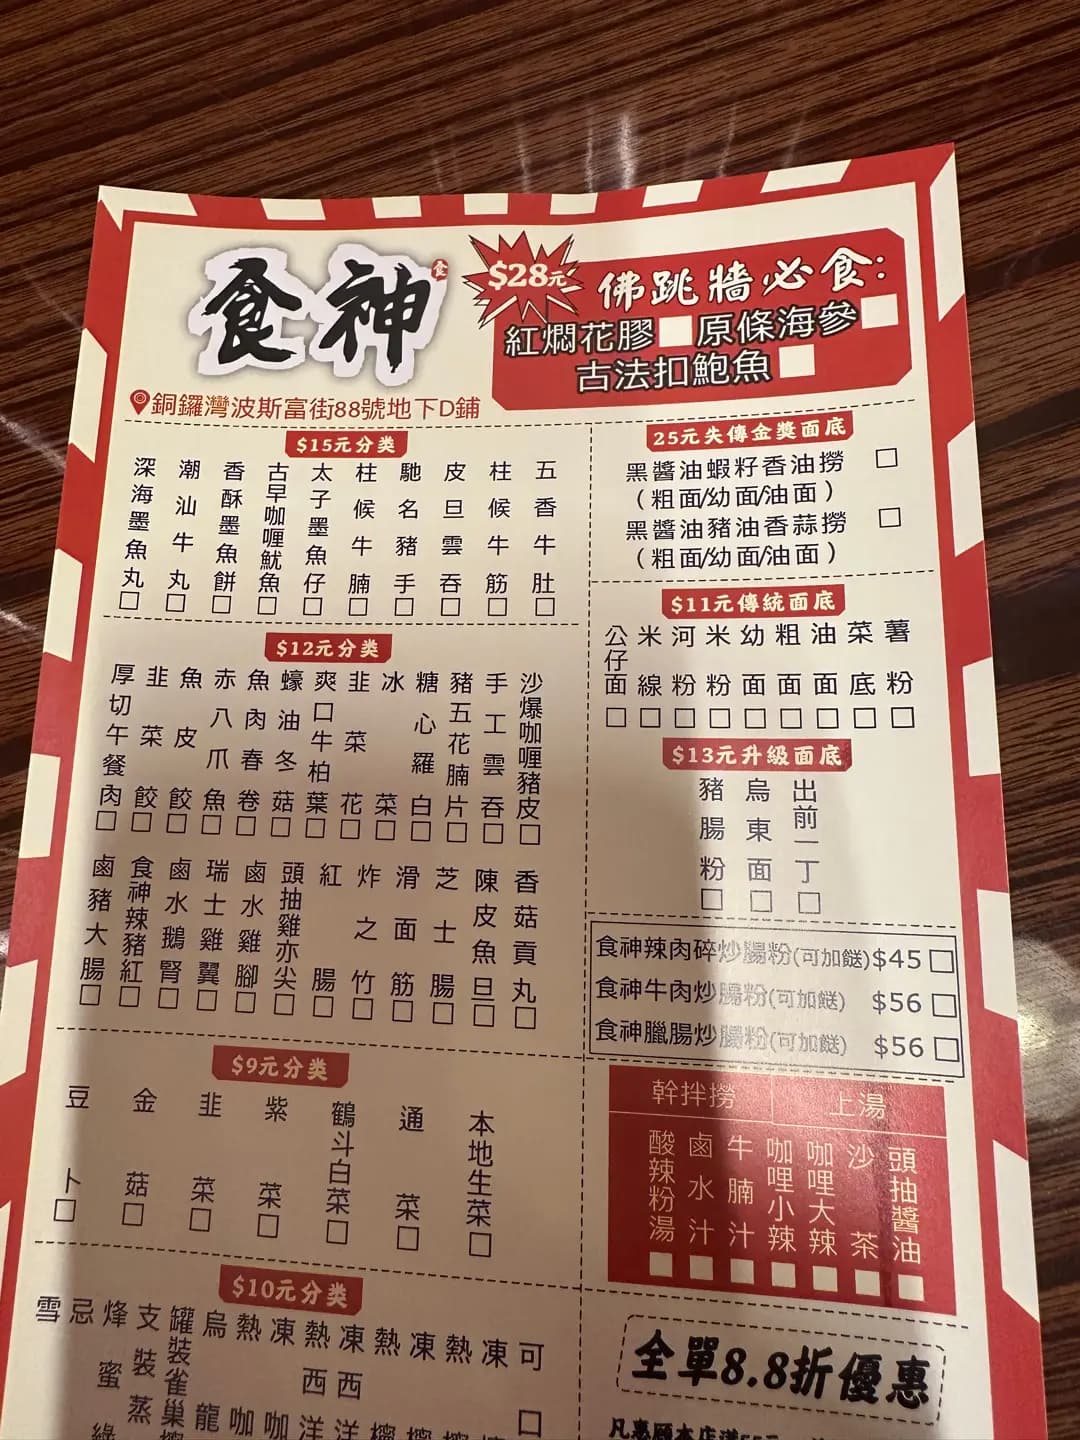 食神
食
$28元
佛跳牆必食:
紅燜花膠 原條海參
古法扣鮑魚
銅鑼灣波斯富街88號地下D鋪
$15元分类
深海墨魚丸
潮汕牛丸
香酥墨魚餅
古早咖喱魷魚
太子墨魚仔
柱候牛腩
馳名豬手
皮旦雲吞
柱候牛筋
五香牛肚
$12元分类
厚切午餐肉
韭菜餃
魚皮餃
赤八爪魚
魚肉春卷
蠔油冬菇
爽口牛柏葉
韭菜花
冰菜
糖心羅白
豬五花腩片
手工雲吞
沙爆咖喱豬皮
鹵豬大腸
食神辣豬紅
鹵水鵝腎
瑞士雞翼
鹵水雞腳
頭抽雞亦尖
紅腸
炸之竹
滑面筋
芝士腸
陳皮魚旦
香菇貢丸
$9元分类
豆卜
金菇
韭菜
紫菜
鶴斗白菜
通菜
本地生菜
$10元分类
雪
忌
烽蜜綠
支裝蒸
罐裝雀巢檸
烏龍
熱咖
凍咖
熱西洋
凍西洋
熱檸
凍檸
熱檸
凍檸
可口
25元失傳金獎面底
黑醬油蝦籽香油撈
(粗面/幼面/油面)
黑醬油豬油香蒜撈
(粗面/幼面/油面)
$11元傳統面底
公仔面
米線
河粉
米粉
幼面
粗面
油面
菜底
薯粉
$13元升級面底
豬腸粉
烏東面
出前一丁
食神辣肉碎炒腸粉(可加餸)$45
食神牛肉炒腸粉(可加餸) $56
食神臘腸炒腸粉(可加餸) $56
幹拌撈
上湯
酸辣粉湯
鹵水汁
牛腩汁
咖哩小辣
咖哩大辣
沙茶
頭抽醬油
全單8.8折優惠
凡惠顧本店滿